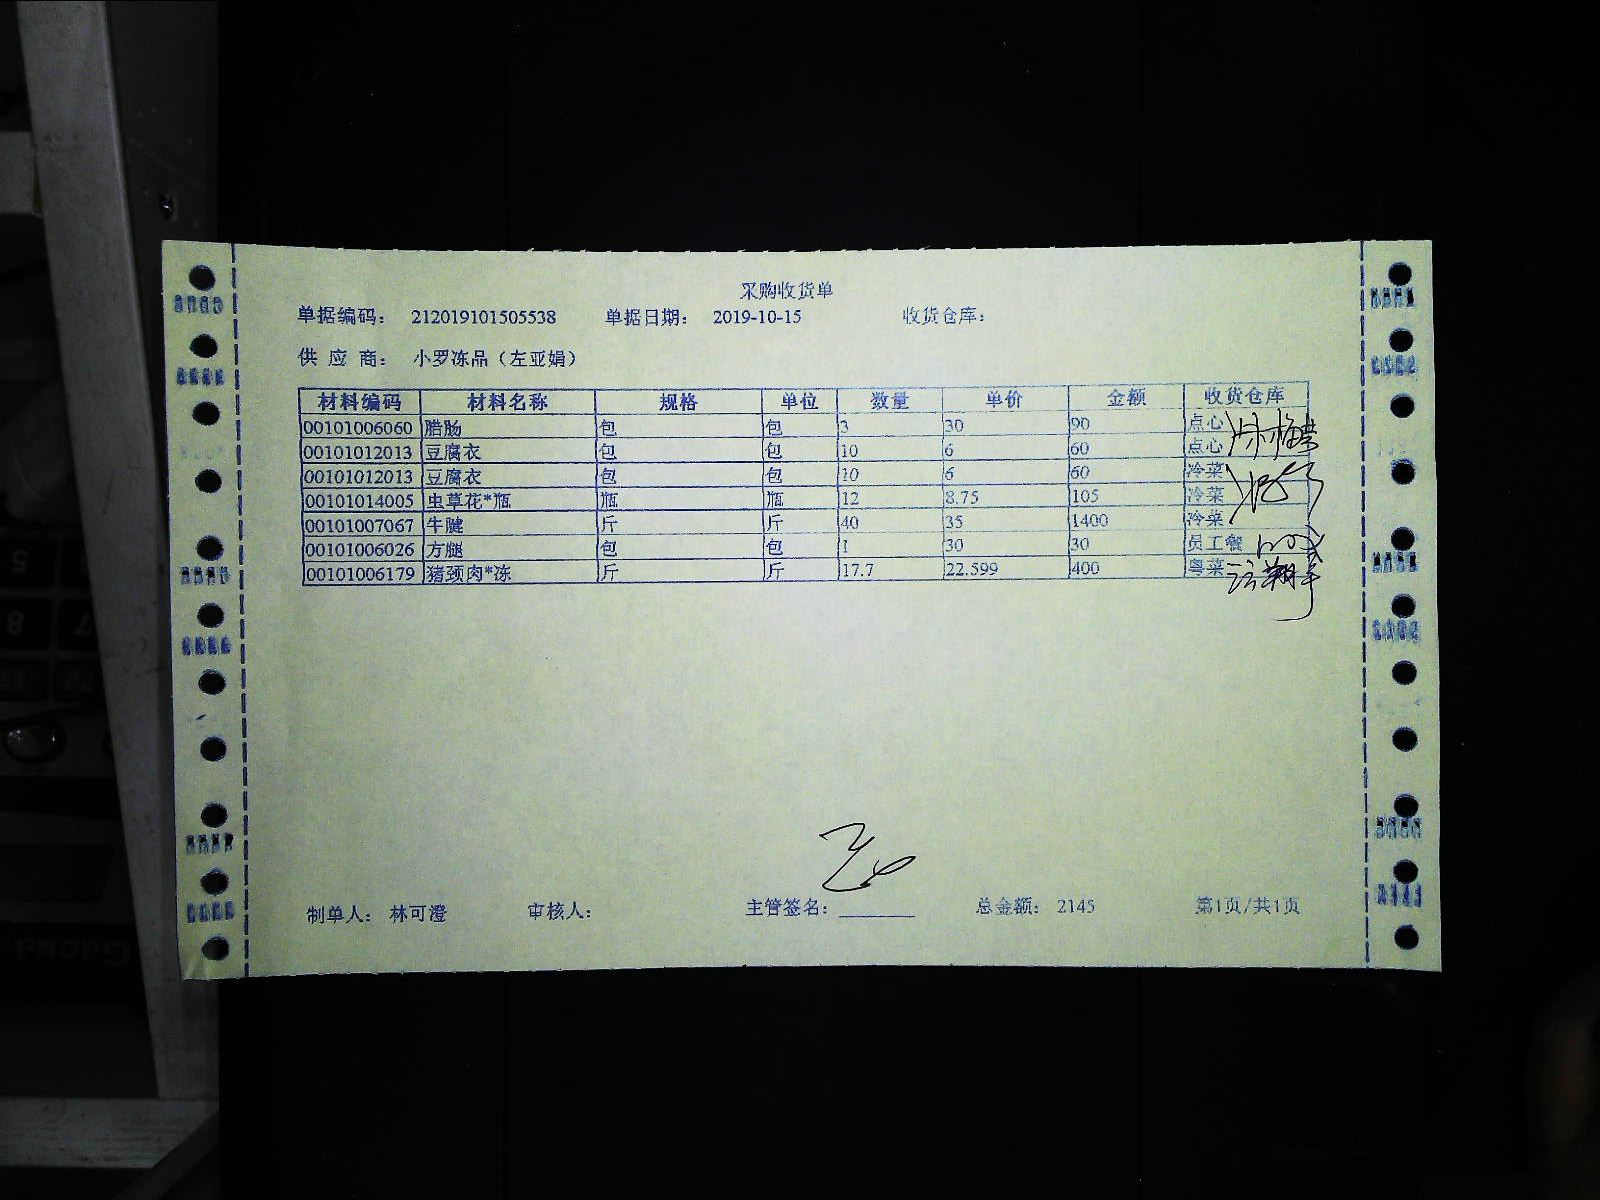 采购收货单
单据编码: 212019101505538 单据日期: 2019-10-15 收货仓库:
供 应 商: 小罗冻品（左亚娟）
材料编码 材料名称 规格 单位 数量 单价 金额 收货仓库
00101006060 腊肠 包 包 3 30 90 点心
00101012013 豆腐衣 包 包 10 6 60 点心
00101012013 豆腐衣 包 包 10 6 60 冷菜
00101014005 虫草花*瓶 瓶 瓶 12 8.75 105 冷菜
00101007067 牛腱 斤 斤 40 35 1400 冷菜
00101006026 方腿 包 包 1 30 30 员工餐
00101006179 猪颈肉*冻 斤 斤 17.7 22.599 400 粤菜
制单人: 林可澄 审核人: 主管签名: 总金额: 2145 第1页/共1页